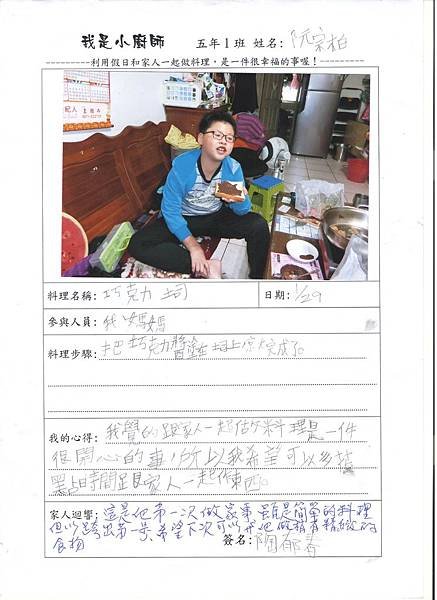 我是小廚師 五年1班 姓名：阮宗柏
利用假日和家人一起做料理，是一件很幸福的事喔！
料理名稱：巧克力土司
日期：1/29
參與人員：我媽媽
料理步驟：把巧克力醬塗在土司上你就完成了。
我的心得：我覺的跟家人一起做料理是一件
很開心的事，所以我希望可以多
點時間跟家人一起做東西。
家人迴響：這是他第一次做家事 雖是簡單的料理
但以跨出第一步，希望下次可以
食物
簽名：陶郁春